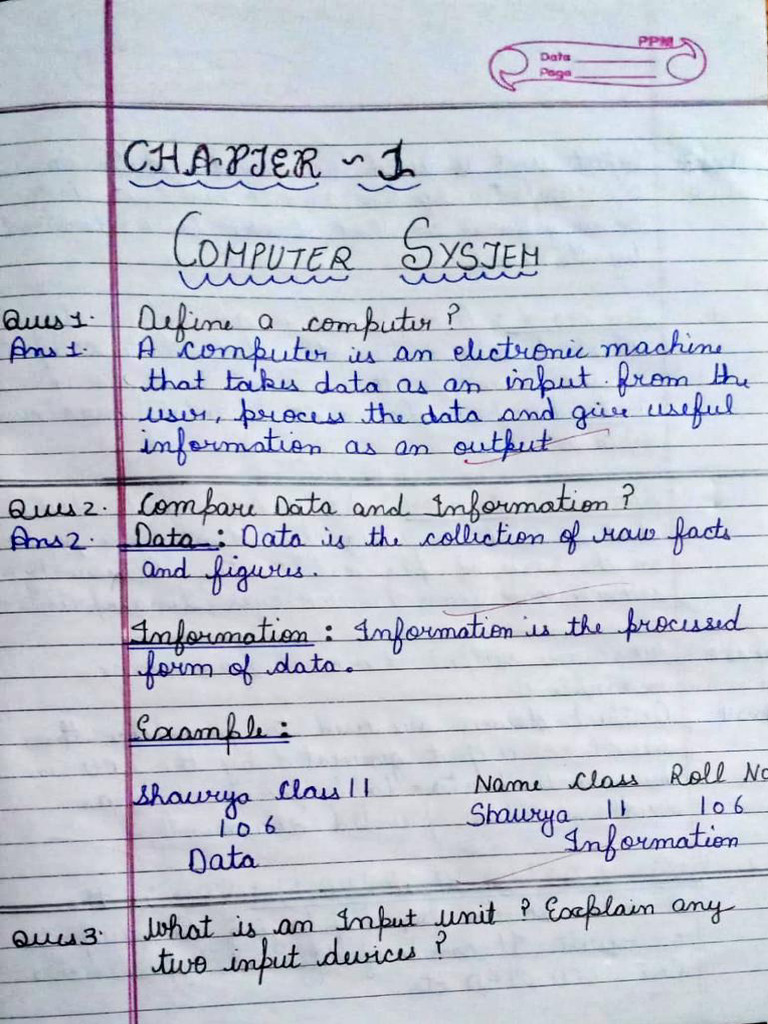 PPM
Data
Page
CHAPTER ~ 1
COMPUTER SYSTEM
Ques 1. Define a computer?
Ans 1. A computer is an electronic machine
that takes data as an input from the
user, process the data and give useful
information as an output
Ques 2. Compare Data and Information?
Ans 2. Data : Data is the collection of raw facts
and figures.
Information : Information is the processed
form of data.
Example :
Shaurya Class 11 Name Class Roll No
106 Shaurya 11 106
Data Information
Ques 3. What is an Input unit? Explain any
two input devices?